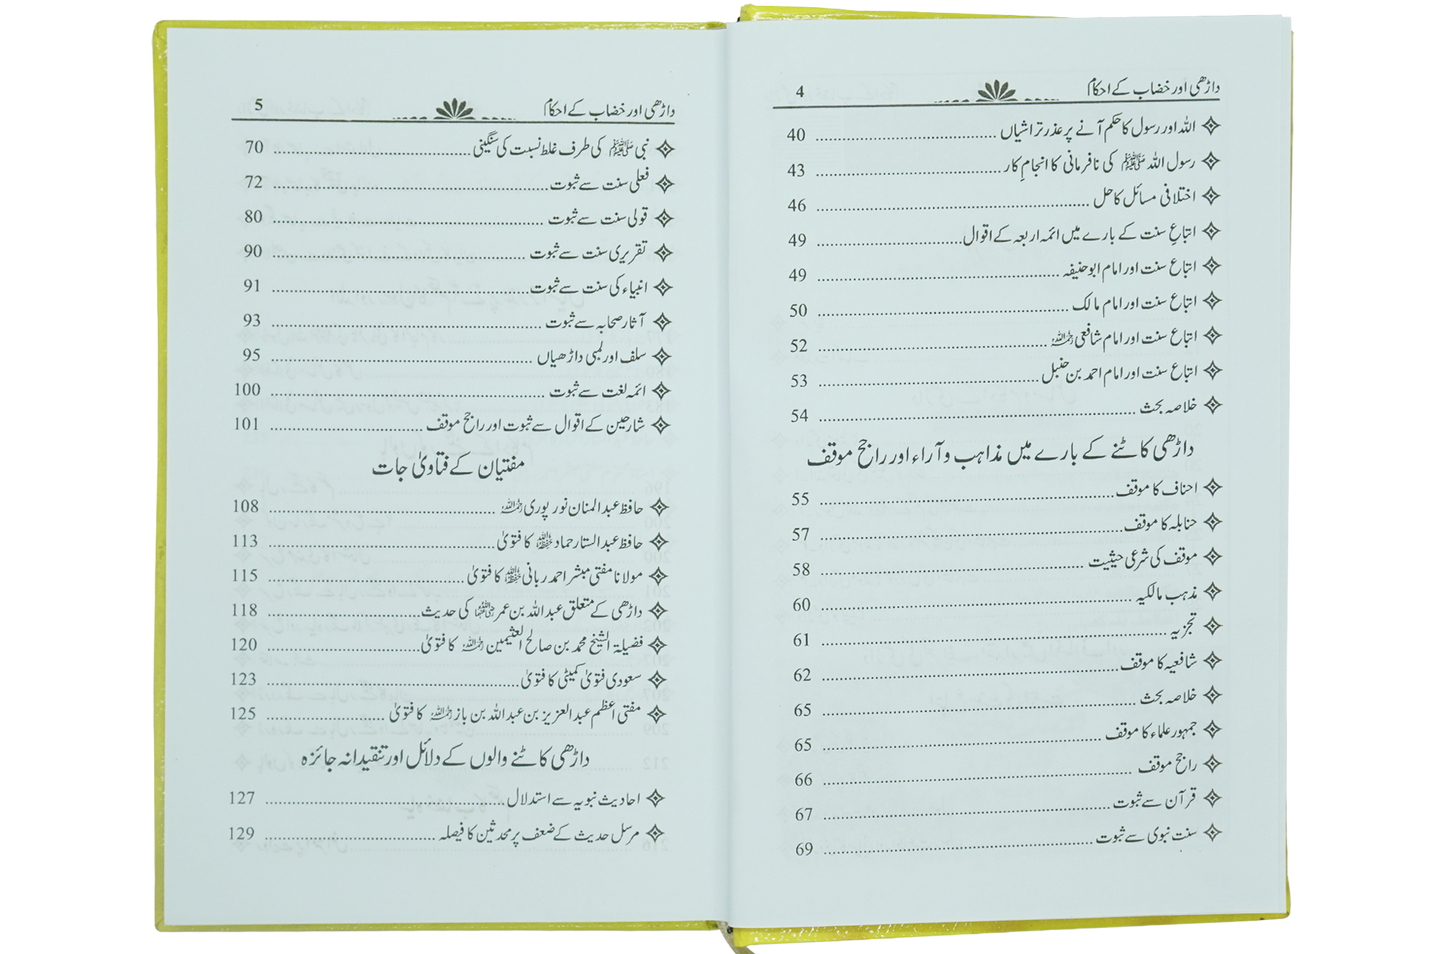 داڑھی اور خضاب کے احکام 4
اللہ اور رسول کا حکم آنے پر عذر تراشیاں 40
رسول اللہ ﷺ کی نافرمانی کا انجامِ کار 43
اختلافی مسائل کا حل 46
اتباعِ سنت کے بارے میں ائمہ اربعہ کے اقوال 49
اتباع سنت اور امام ابوحنیفہ 49
اتباع سنت اور امام مالک 50
اتباع سنت اور امام شافعی رحمہ اللہ 52
اتباع سنت اور امام احمد بن حنبل 53
خلاصہ بحث 54
داڑھی کاٹنے کے بارے میں مذاہب و آراء اور راجح موقف
احناف کا موقف 55
حنابلہ کا موقف 57
موقف کی شرعی حیثیت 58
مذہب مالکیہ 60
تجزیہ 61
شافعیہ کا موقف 62
خلاصہ بحث 65
جمہور علماء کا موقف 65
راجح موقف 66
قرآن سے ثبوت 67
سنت نبوی سے ثبوت 69
داڑھی اور خضاب کے احکام 5
نبی ﷺ کی طرف غلط نسبت کی سنگینی 70
فعلی سنت سے ثبوت 72
قولی سنت سے ثبوت 80
تقریری سنت سے ثبوت 90
انبیاء کی سنت سے ثبوت 91
آثار صحابہ سے ثبوت 93
سلف اور لمبی داڑھیاں 95
ائمہ لغت سے ثبوت 100
شارحین کے اقوال سے ثبوت اور راجح موقف 101
مفتیان کے فتاویٰ جات
حافظ عبدالمنان نور پوری رحمہ اللہ 108
حافظ عبدالستار حماد حفظہ اللہ کا فتویٰ 113
مولانا مفتی مبشر احمد ربانی حفظہ اللہ کا فتویٰ 115
داڑھی کے متعلق عبداللہ بن عمر رضی اللہ عنہما کی حدیث 118
فضیلۃ الشیخ محمد بن صالح العثیمین رحمہ اللہ کا فتویٰ 120
سعودی فتویٰ کمیٹی کا فتویٰ 123
مفتی اعظم عبدالعزیز بن عبداللہ بن باز رحمہ اللہ کا فتویٰ 125
داڑھی کاٹنے والوں کے دلائل اور تنقیدانہ جائزہ
احادیث نبویہ سے استدلال 127
مرسل حدیث کے ضعف پر محدثین کا فیصلہ 129